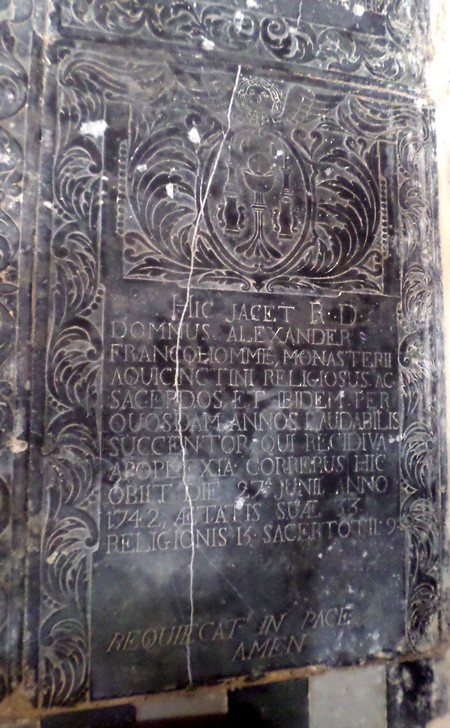 HIC JACET R·D·
DOMNUS ALEXANDER
FRANCQHOMME, MONASTERII
AQUICINCTINI RELIGIOSUS AC
SACERDOS ET IBIDEM PER
QUOSDAM ANNOS LAUDABILIS
SUCCENTOR, QUI RECIDIVA
APOPLEXIA CORREPUS HIC
OBIIT DIE 27ª JUNII ANNO
1742, ÆTATIS SUÆ 33
RELIGIONIS 13 SACERTOTII 9
REQUIECAT IN PACE
AMEN